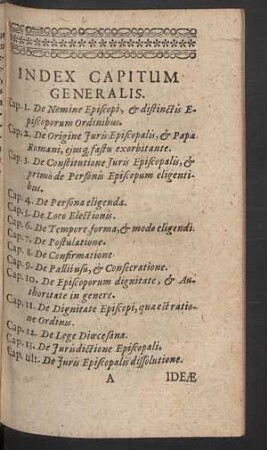 INDEX CAPITUM
GENERALIS.
Cap. 1. De Nomine Episcopi, & distinctis E-
piscoporum Ordinibus.
Cap. 2. De Origine Juris Episcopalis, & Papæ
Romani, ejusq; fastu exorbitante.
Cap. 3. De Constitutione Juris Episcopalis, &
primò de Personis Episcopum eligenti-
bus.
Cap. 4. De Persona eligenda.
Cap. 5. De Loco Electionis.
Cap. 6. De Tempore, forma, & modo eligendi.
Cap. 7. De Postulatione.
Cap. 8. De Confirmatione.
Cap. 9. De Pallii usu, & Consecratione.
Cap. 10. De Episcoporum dignitate, & Au-
thoritate in genere.
Cap. 11. De Dignitate Episcopi, quæ est ratio-
ne Ordinis.
Cap. 12. De Lege Diœcesana.
Cap. 13. De Jurisdictione Episcopali.
Cap. ult. De Juris Episcopalis dissolutione.
A IDEÆ